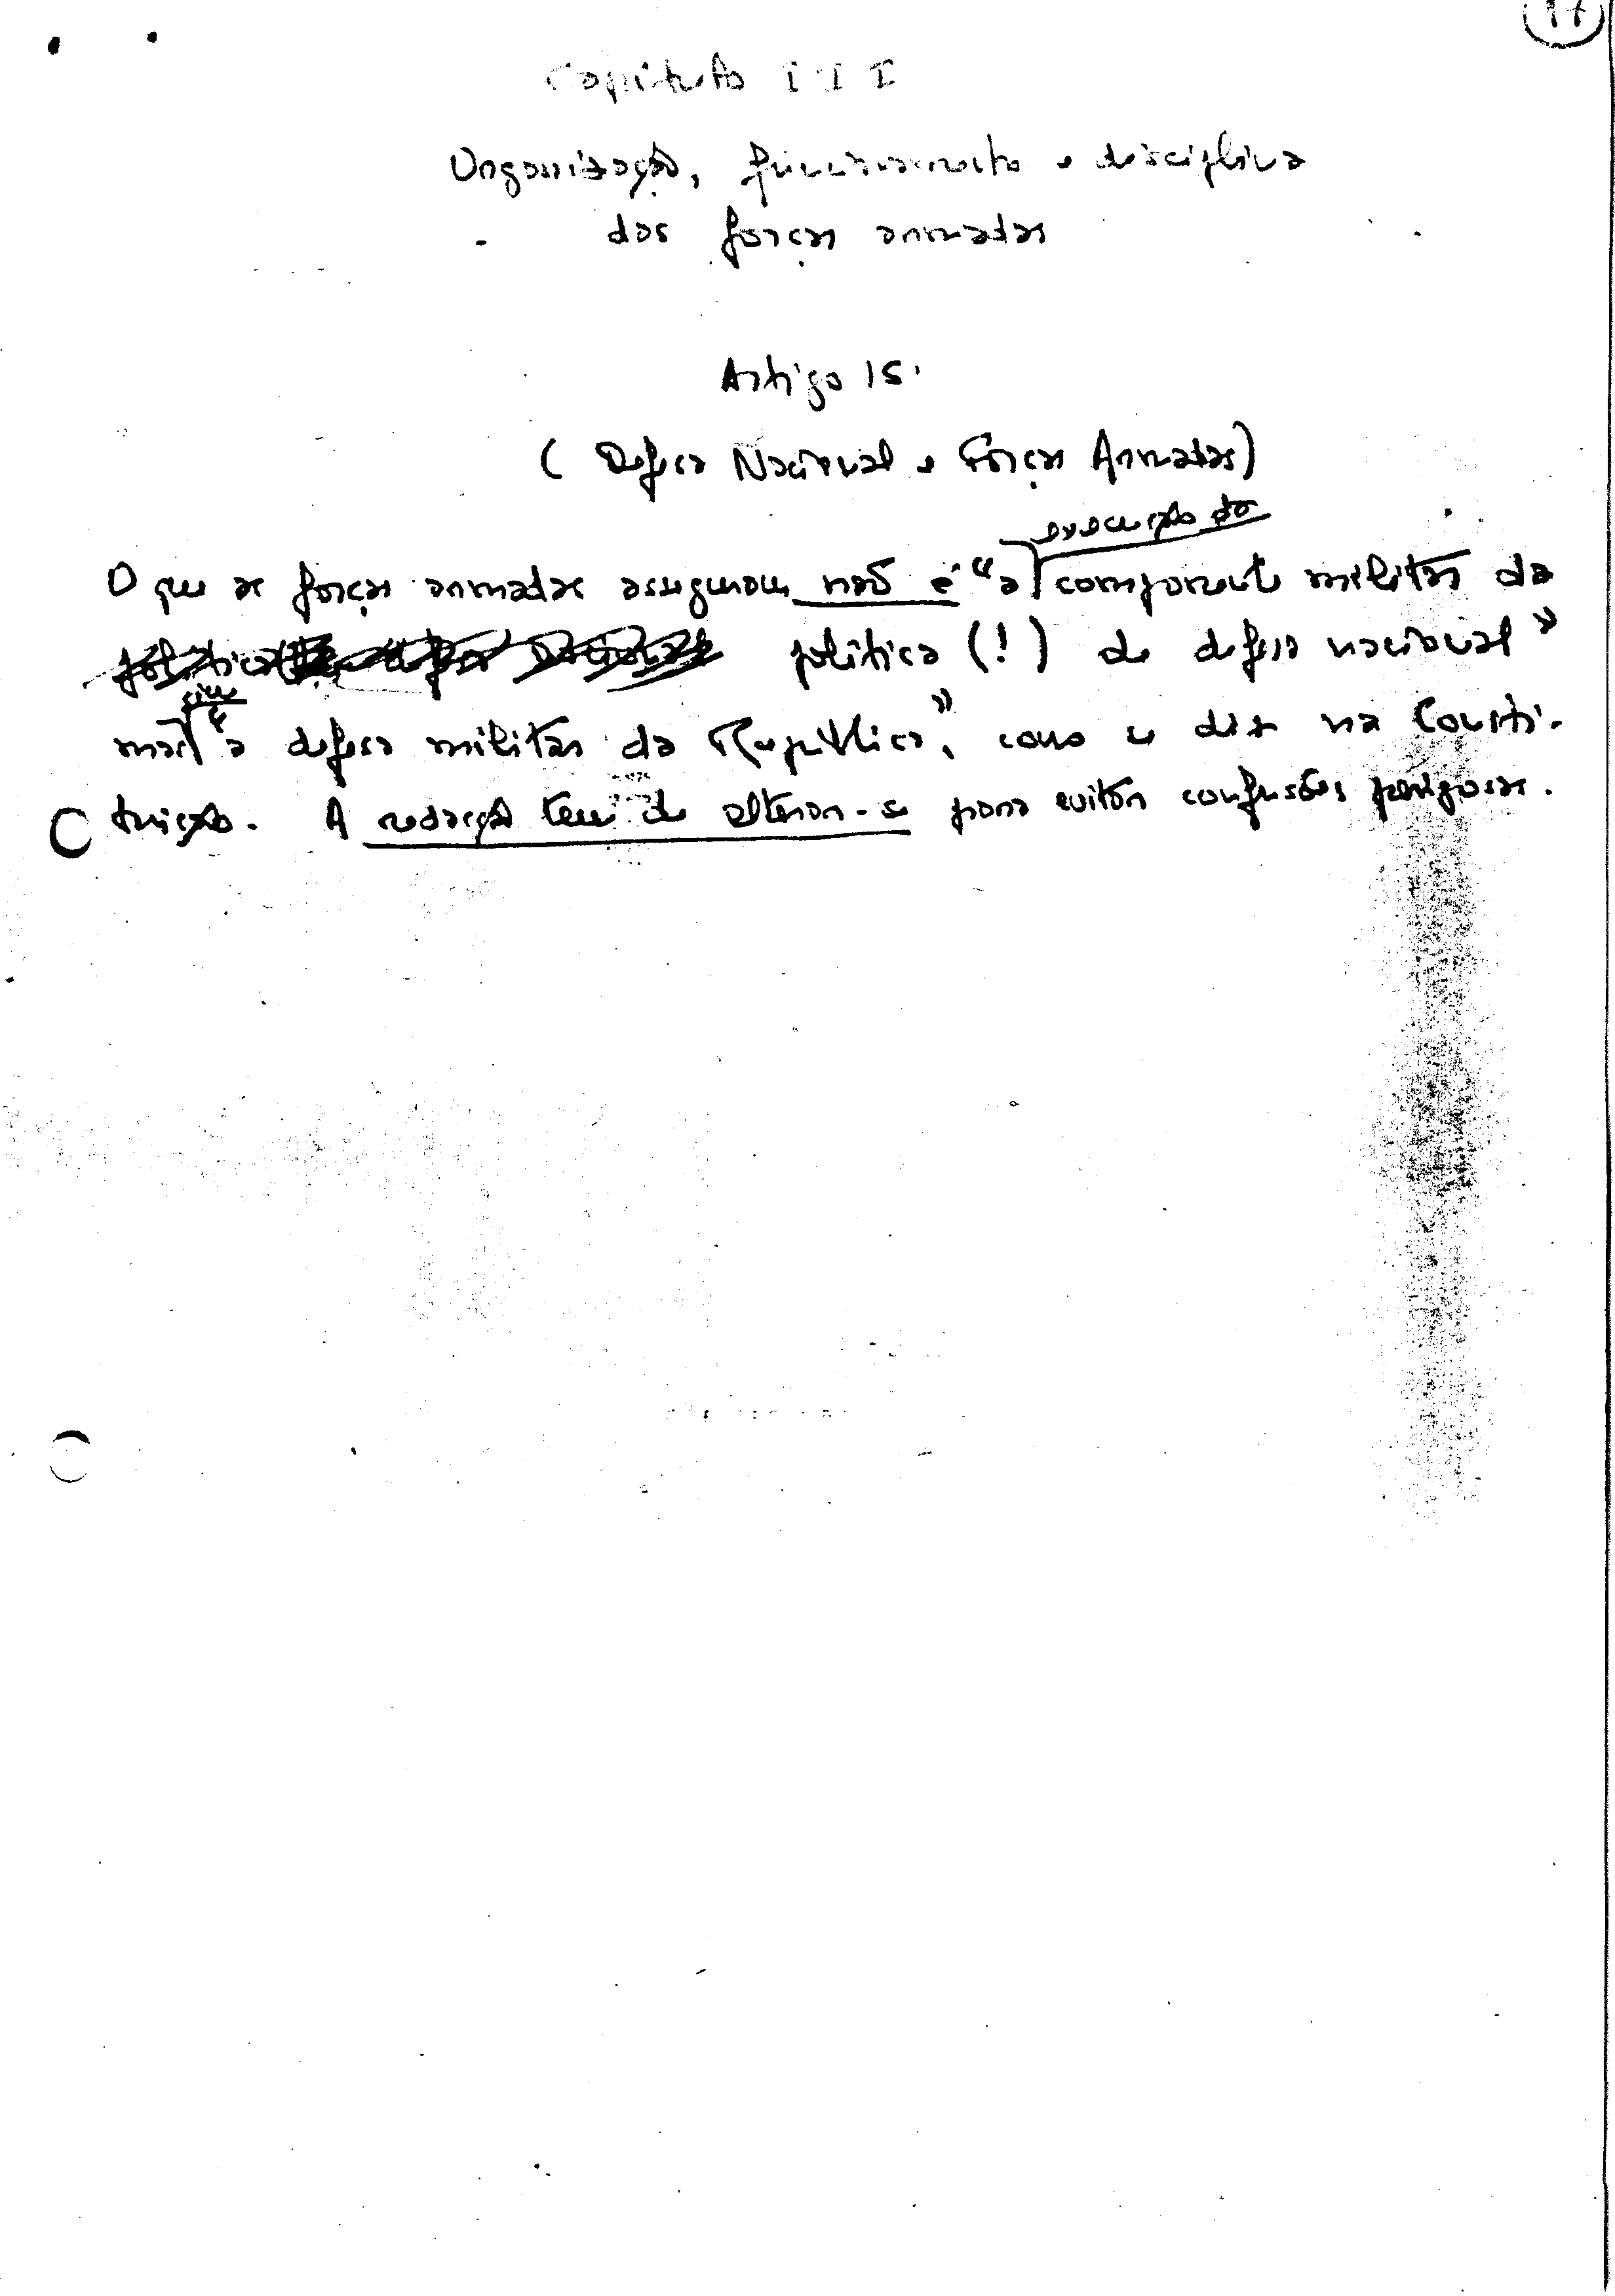 17
Capítulo III
Organização, funcionamento e disciplina
das forças armadas
Artigo 15.
(Defesa Nacional e Forças Armadas)
execução da
O que as forças armadas asseguram não é "a componente militar da
política (!) de defesa nacional"
sim
mas "a defesa militar da República", como se diz na Consti-
tuição. A redacção tem de alterar-se para evitar confusões perigosas.